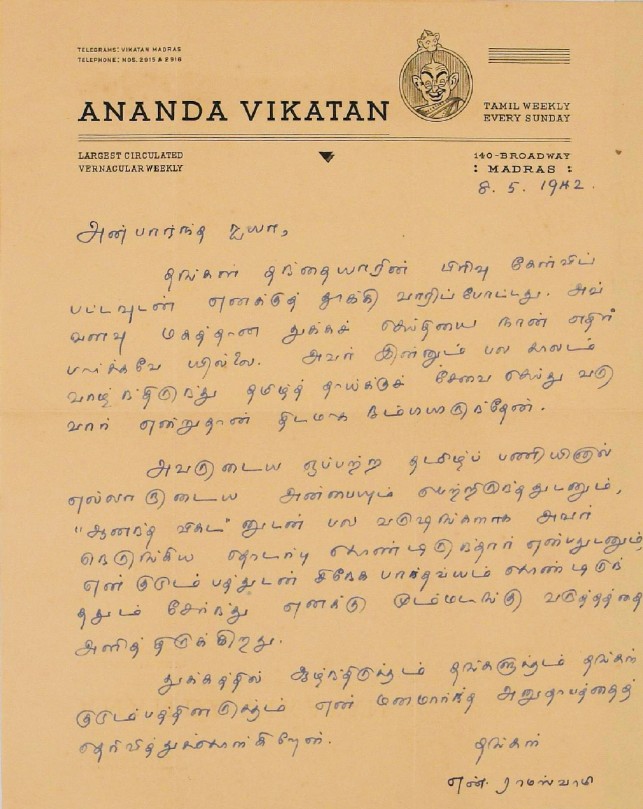 TELEGRAMS: VIKATAN MADRAS
TELEPHONE: NOS. 2915 & 2916
ANANDA VIKATAN
TAMIL WEEKLY
EVERY SUNDAY
LARGEST CIRCULATED
VERNACULAR WEEKLY
140-BROADWAY
: MADRAS :
8. 5. 1942.
அன்பார்ந்த ஐயா,
தங்கள் தந்தையாரின் பிரிவு கேள்விப்
பட்டவுடன் எனக்குத் தூக்கி வாரிப் போட்டது. அவ்
வளவு மகத்தான துக்கச் செய்தியை நான் எதிர்
பார்க்கவே யில்லை. அவர் இன்னும் பல காலம்
வாழ்ந்திருந்து தமிழ்த் தாய்க்குச் சேவை செய்து வரு
வார் என்றுதான் திடமாக நம்பியிருந்தேன்.
அவருடைய ஒப்பற்ற தமிழ்ப் பணியினால்
எல்லாருடைய அன்பையும் பெற்றிருந்ததுடனும்,
"ஆனந்த விகட"னுடன் பல வருஷங்களாக அவர்
நெருங்கிய தொடர்பு கொண்டிருந்தார் என்பதுடனும்,
என் குடும்பத்துடன் சிநேக பாந்தவ்யம் கொண்டிருந்
ததும் சேர்ந்து எனக்கு மும்மடங்கு வருத்தத்தை
அளித்திருக்கிறது.
துக்கத்தில் ஆழ்ந்திருக்கும் தங்களுக்கும் தங்கள்
குடும்பத்தினருக்கும் என் மனமார்ந்த அனுதாபத்தைத்
தெரிவித்துக்கொள்கிறேன்.
தங்கள்
என். ராமஸ்வாமி